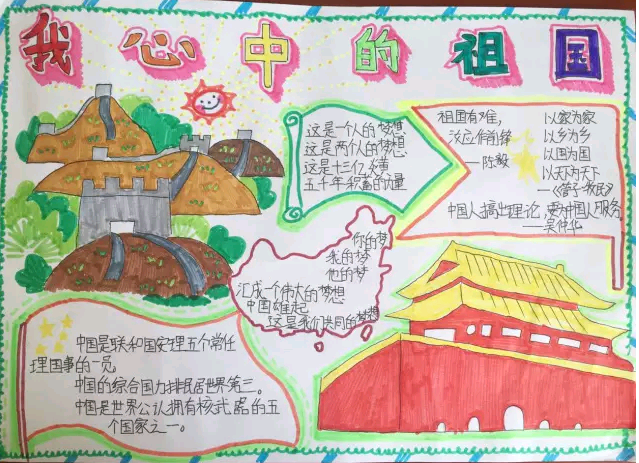 我心中的祖国
这是一个人的梦想
这是两个人的梦想
这是十三亿炎黄
五千年积蓄的力量
祖国有难,
汝应作前锋
—陈毅
以家为家
以乡为乡
以国为国
以天下为天下
—《管子·牧民》
中国人搞出理论,要为中国人服务
—吴仲华
你的梦
我的梦
他的梦
汇成一个伟大的梦想
中国雄起
这是我们共同的梦想
中国是联和国安理五个常任
理国事的一员。
中国的综合国力排民居世界第三。
中国是世界公认拥有核武器的五
个国家之一。